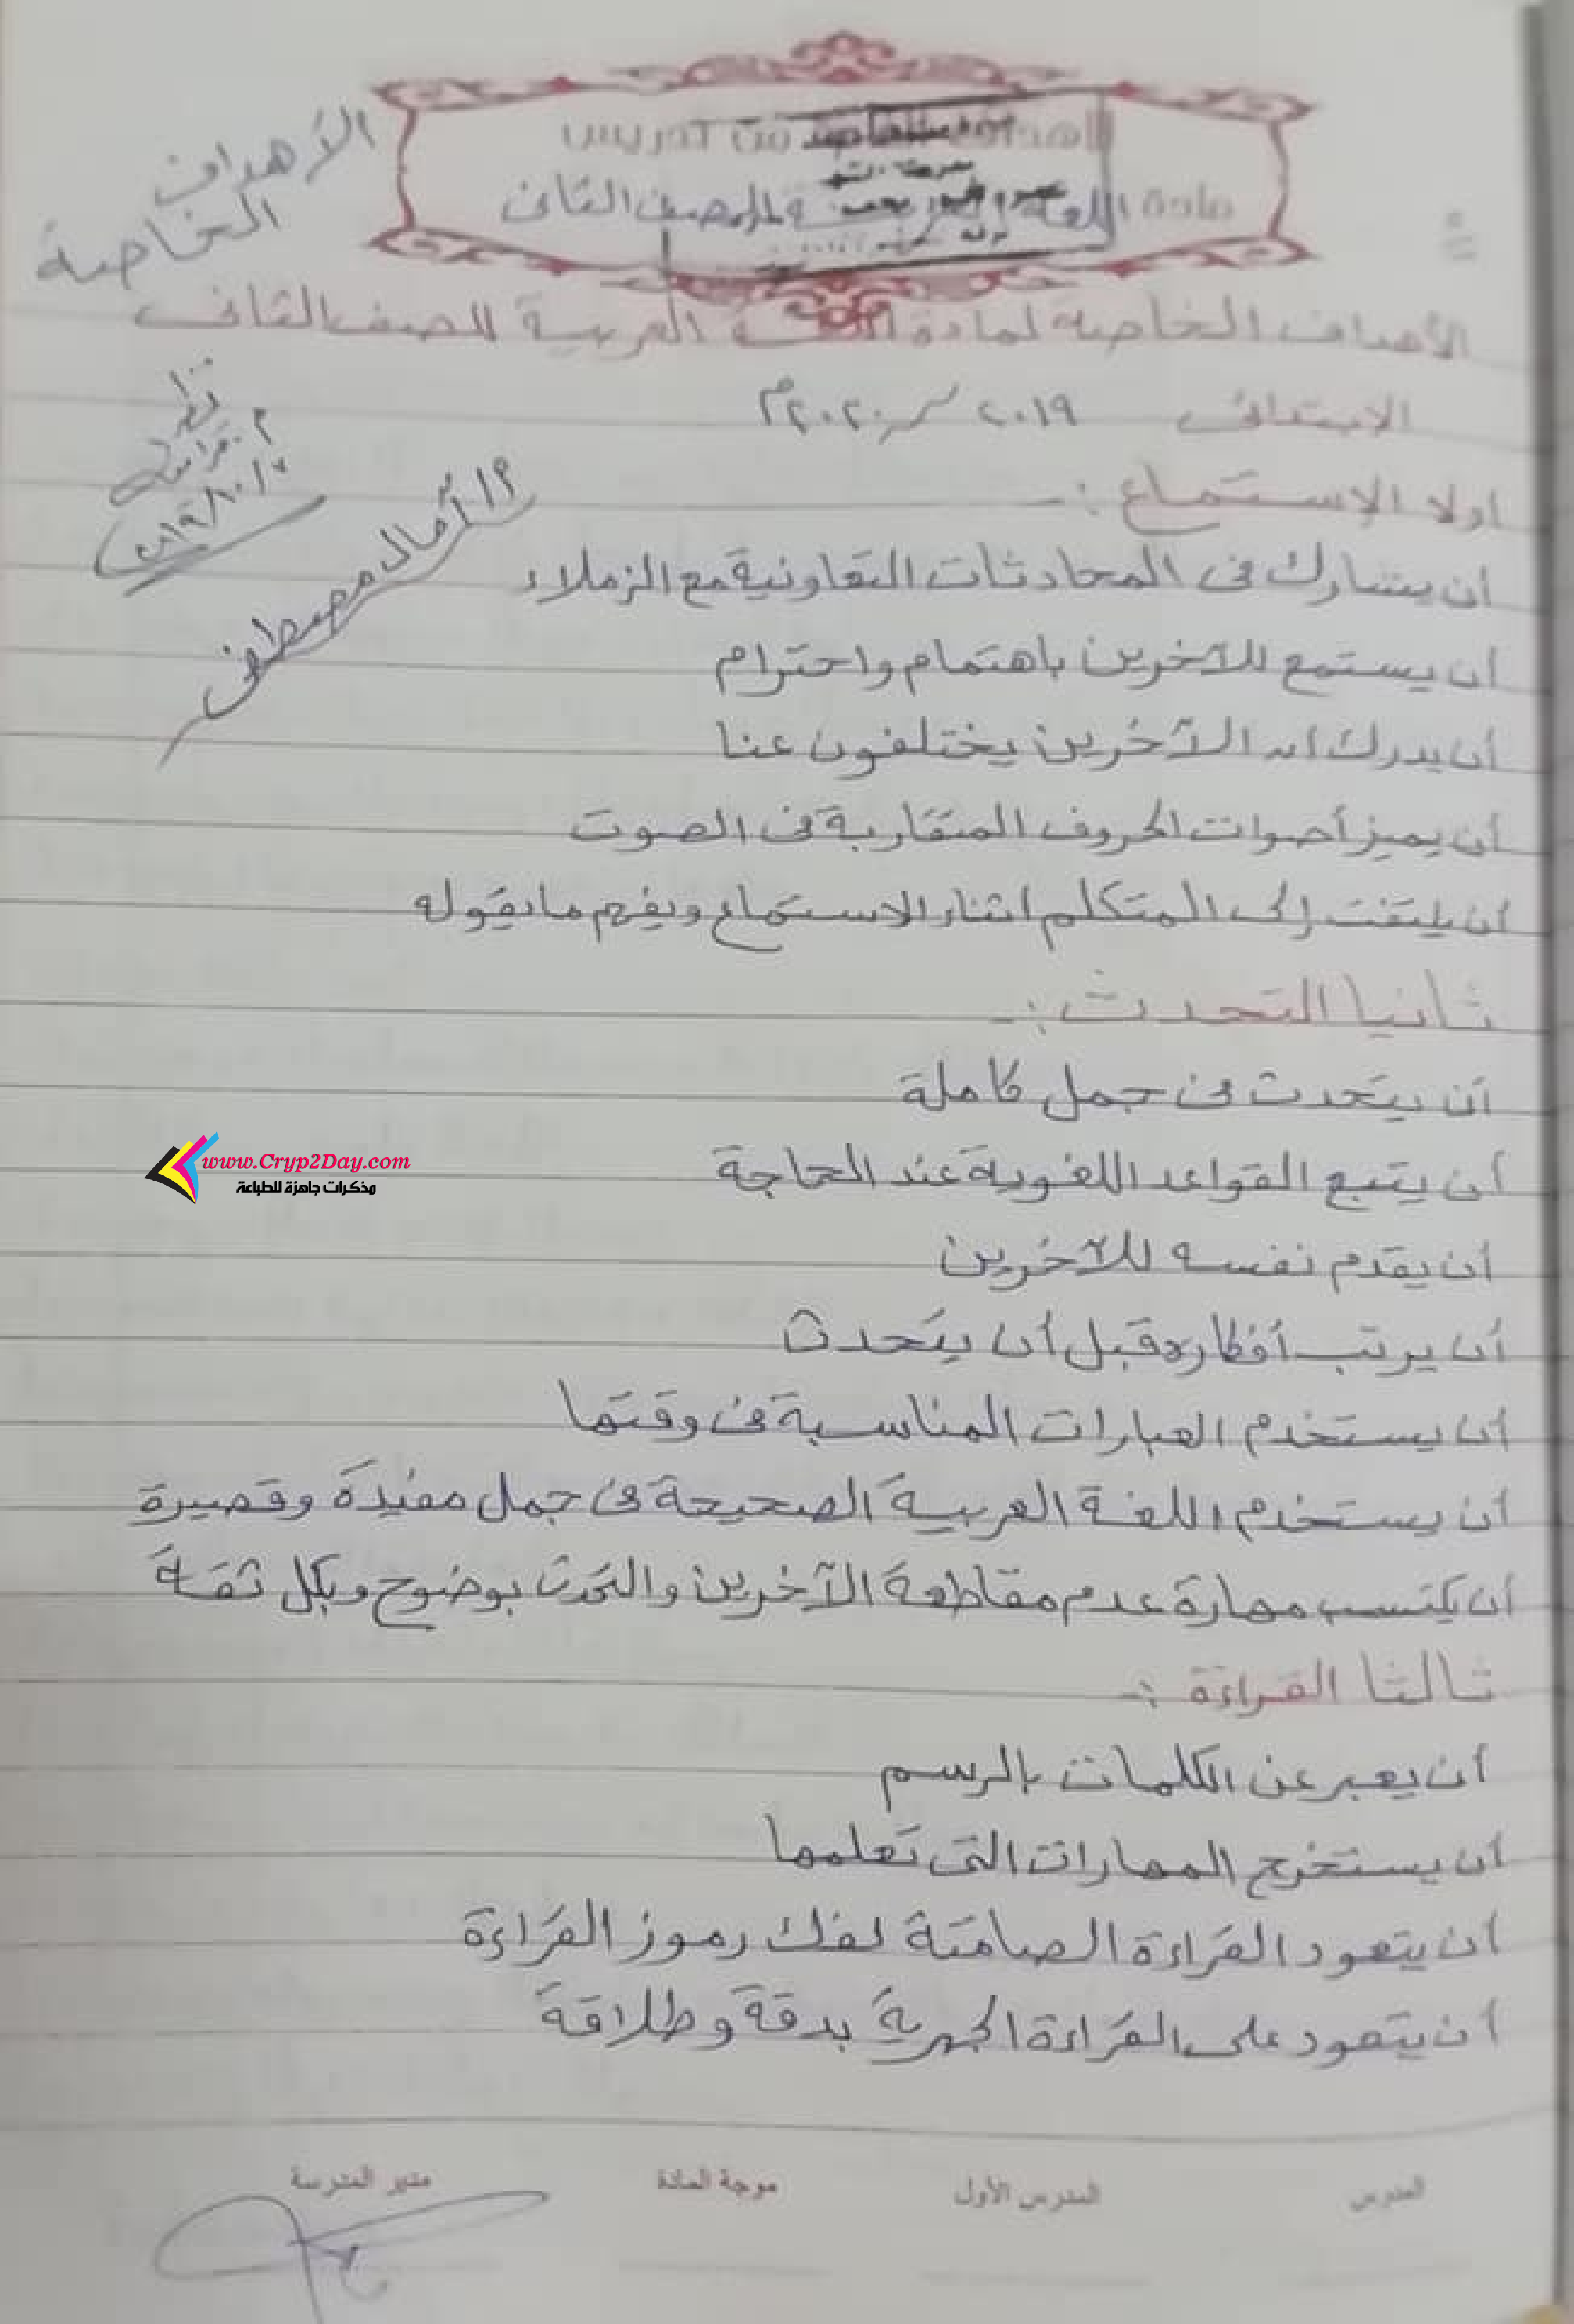 الأهداف
الخاصة
من تدريس
مادة اللغة للصف الثانى
الأهداف الخاصة لمادة اللغة العربية للصف الثانى
الابتدائى ٢٠١٩ / ٢٠٢٠م
نظر
٢٠١٩/١٠/٧
م/ آمال مصطفى
اولا الإستماع :-
أن يشارك فى المحادثات التعاونية مع الزملاء
أن يستمع للآخرين باهتمام واحترام
أن يدرك ان الآخرين يختلفون عنا
أن يميز أصوات الحروف المتقاربة فى الصوت
أن يلتفت إلى المتكلم اثناء الاستماع ويفهم ما يقوله
ثانيا التحدث :-
أن يتحدث فى جمل كاملة
www.Cryp2Day.com
مذكرات جاهزة للطباعة
أن يتبع القواعد اللغوية عند الحاجة
أن يقدم نفسه للآخرين
أن يرتب أفكاره قبل أن يتحدث
أن يستخدم العبارات المناسبة فى وقتها
أن يستخدم اللغة العربية الصحيحة فى جمل مفيدة وقصيرة
أن يكتسب مهارة عدم مقاطعة الآخرين والتحدث بوضوح وبكل ثقة
ثالثا القراءة :-
أن يعبر عن الكلمات بالرسم
أن يستخرج المهارات التى تعلمها
أن يتعود القراءة الصامتة لفك رموز القراءة
أن يتعود على القراءة الجهرية بدقة وطلاقة
المدرس المدرس الأول موجة المادة مدير المدرسة